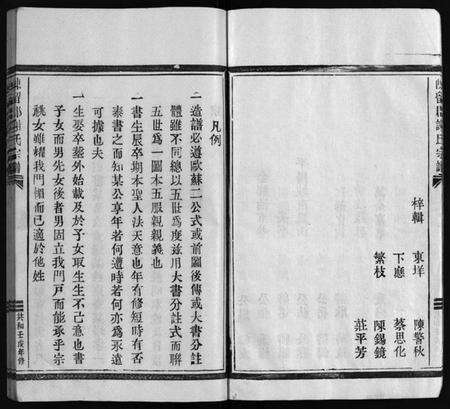 梓輯
東垟 陳警秋
下應 蔡思化
繁枝 陳錫鏡
莊平芳
凡例
一造譜必遵歐蘇二公式或前圖後傳或大書分註
體雖不同總以五世為度兹用大書分註式而聨
五世爲一圖本五服親親義也
一書生辰卒期本聖人法天意也年有修短時有否
泰書之而知某公享年若何遭時若何亦爲永遠
可據也夫
一生娶卒塟外始載及於子女取生生不已意也書
子女而男先女後者男固立我門戸而能承乎宗
祧女雖耀我門楣而已適於他姓
陳留郡謝氏宗譜
共和壬戌年修